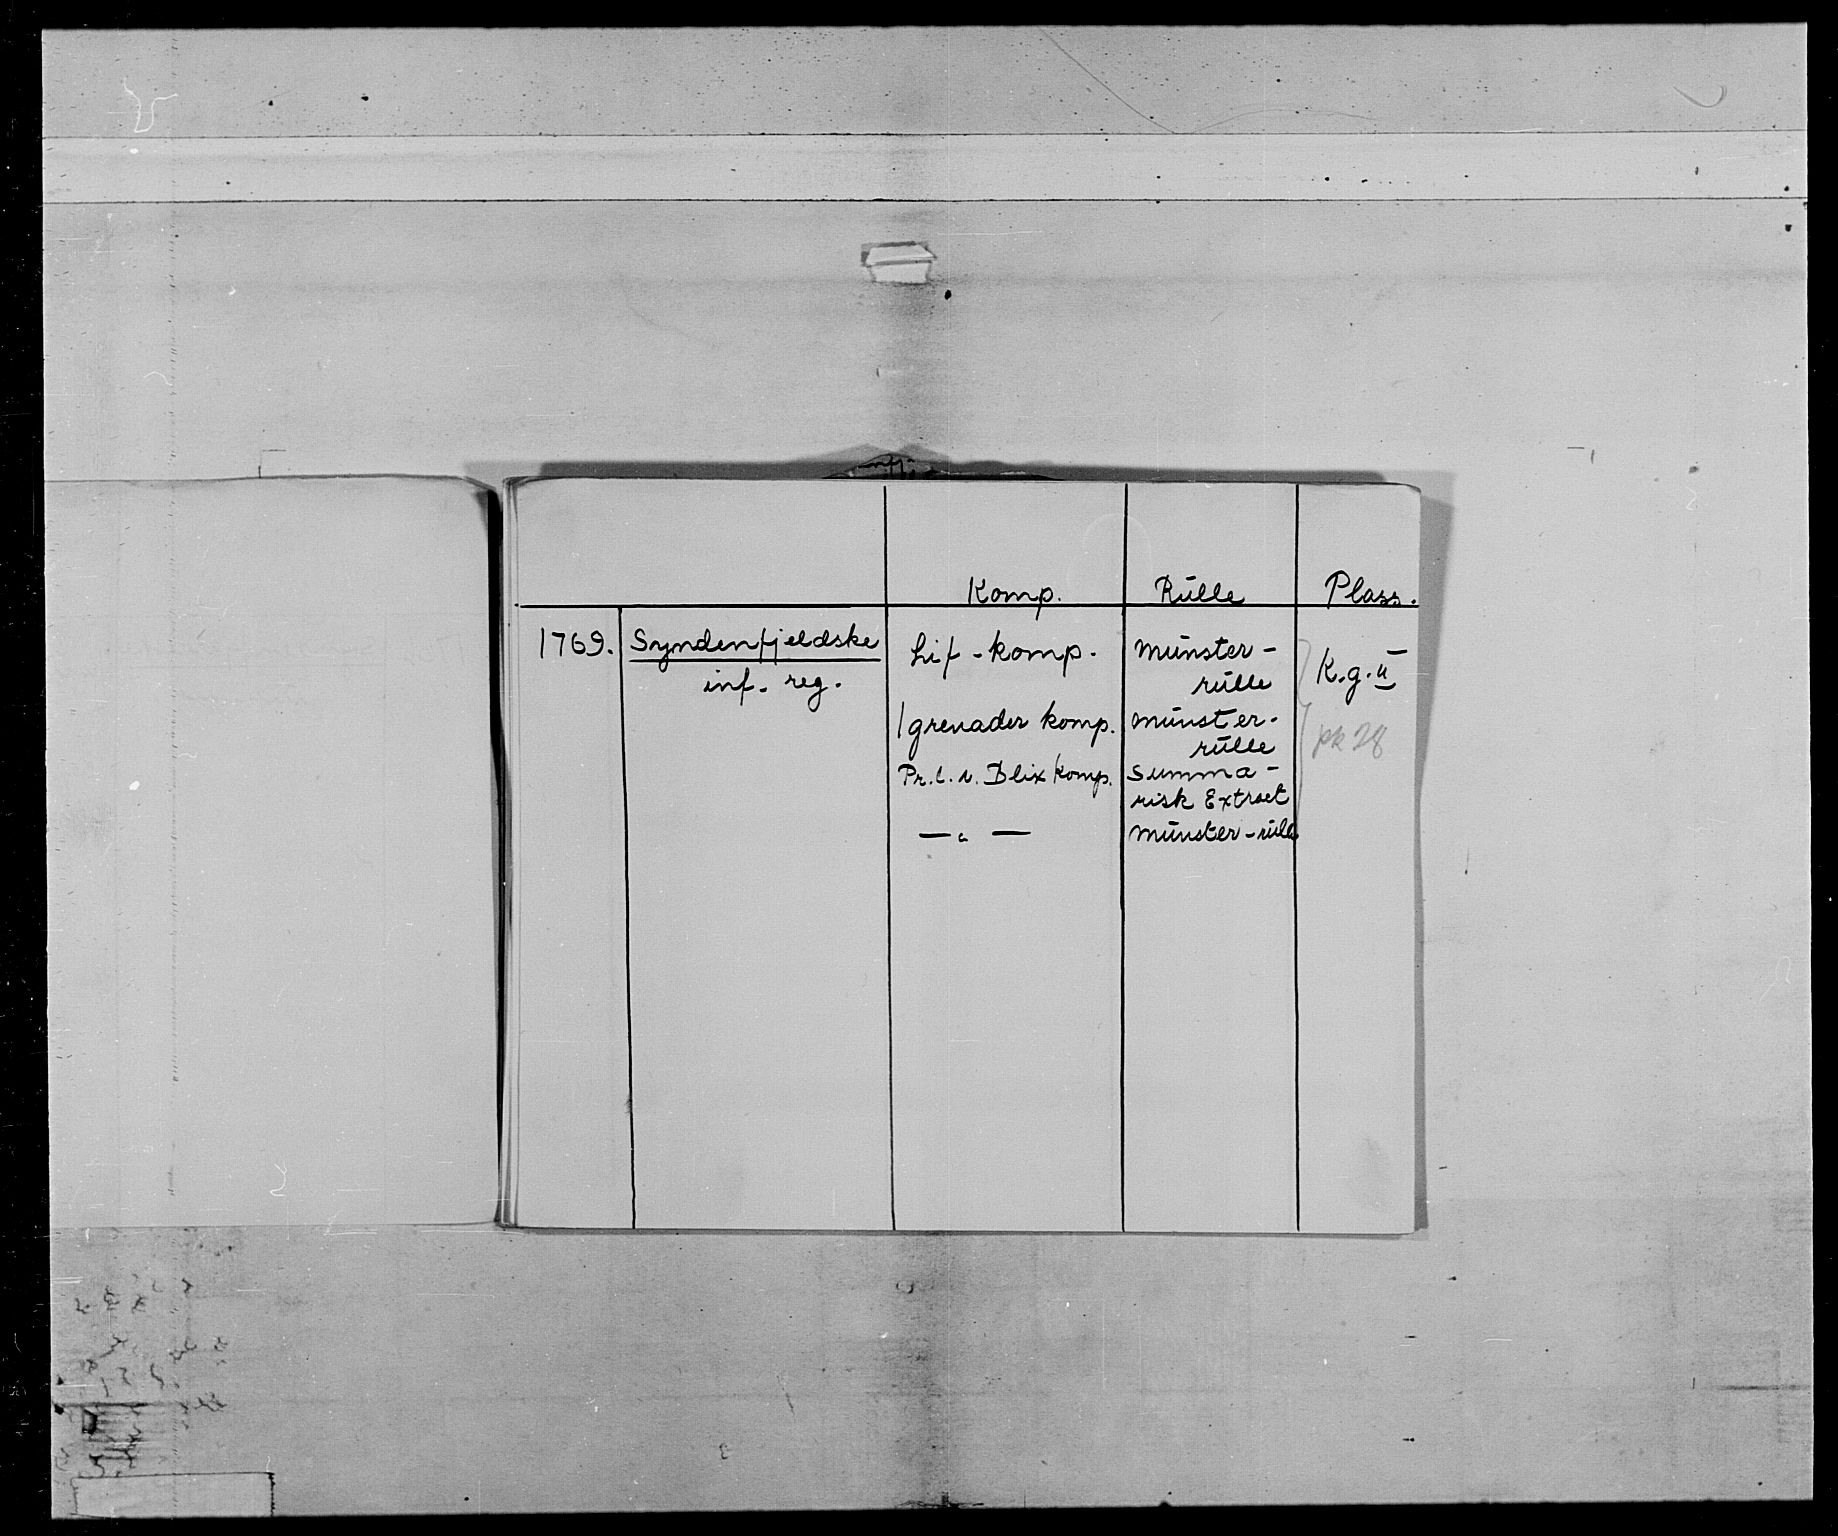 Komp. Rülle Plass.
1769. Syndenfjeldske Lif-komp. münster-
inf. reg. rülle K.g.II
1 grenader komp. münster-
rülle pk 28
Pr. l. v. Blix komp. Summa-
risk Extract
— " — münster-rülle